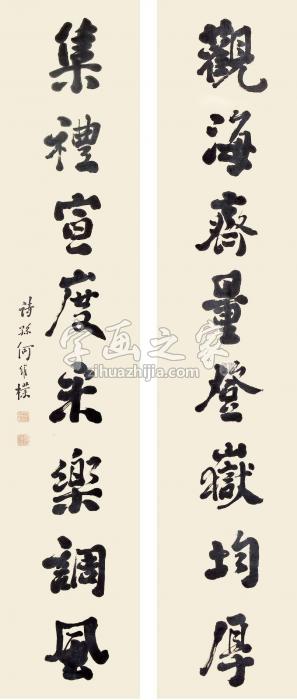 觀海齊量登嶽均厚
集禮宣度采樂調風
詩孫何維樸
字画之家
zihuazhijia.com